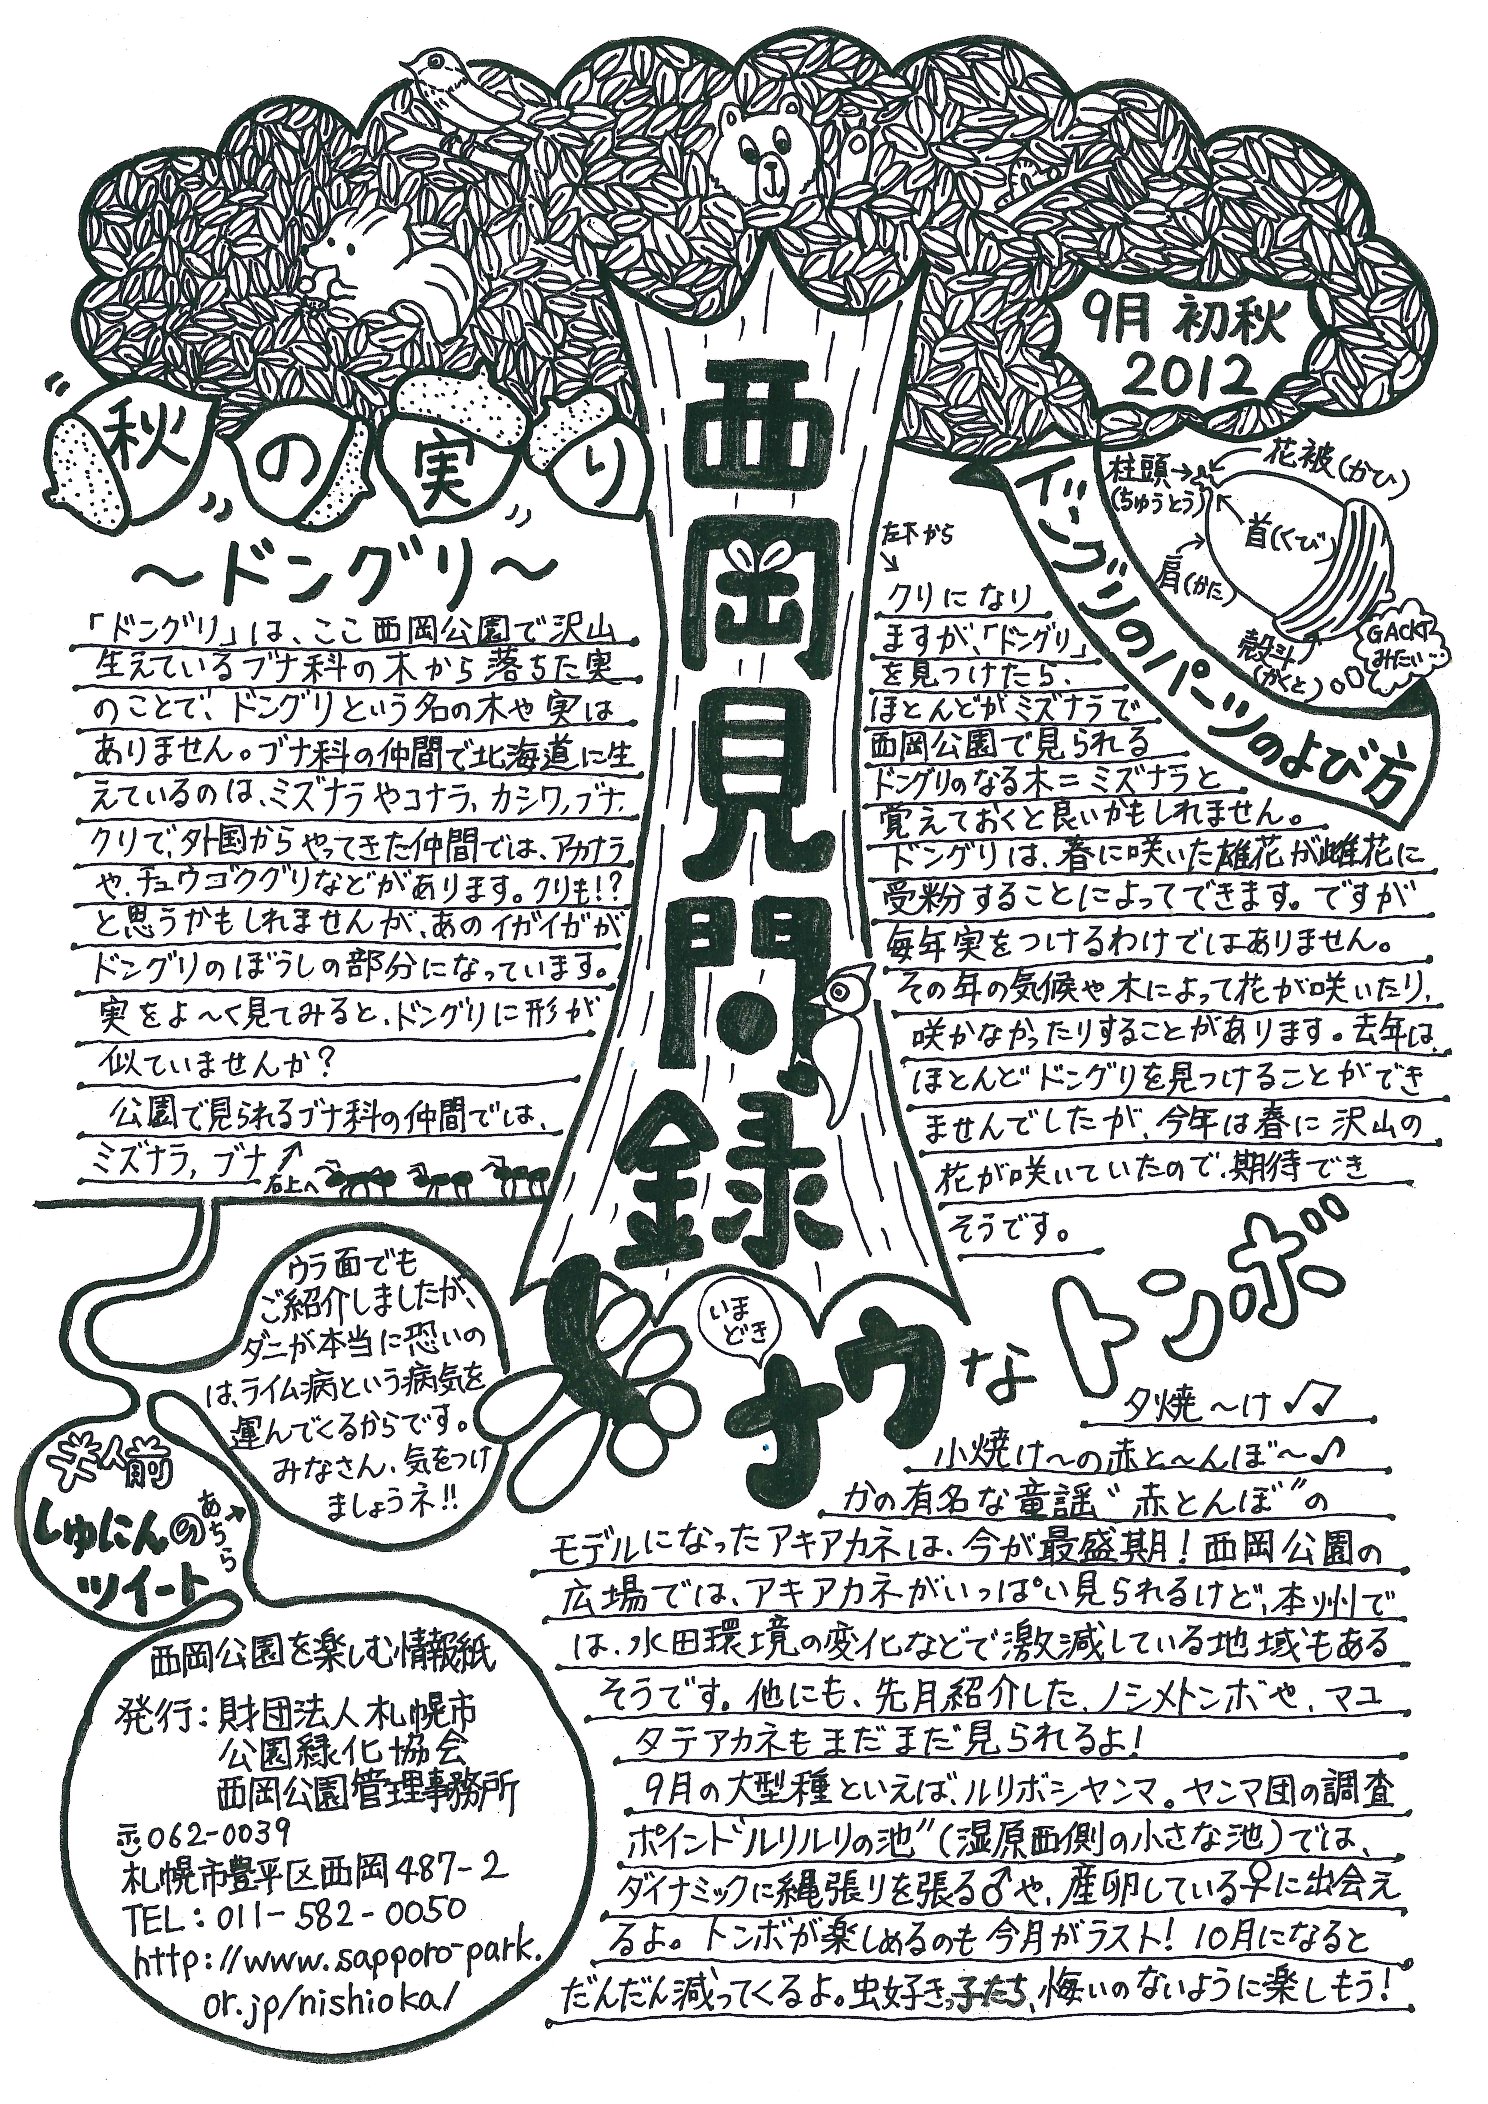 西岡見聞録
9月 初秋
2012
秋の実り
～ドングリ～
「ドングリ」は、ここ西岡公園で沢山
生えているブナ科の木から落ちた実
のことで、ドングリという名の木や実は
ありません。ブナ科の仲間で北海道に生
えているのは、ミズナラやコナラ、カシワ、ブナ、
クリで、外国からやってきた仲間では、アカナラ
や、チュウゴクグリなどがあります。クリも!?
と思うかもしれませんが、あのイガイガが
ドングリのぼうしの部分になっています。
実をよ～く見てみると、ドングリに形が
似ていませんか?
公園で見られるブナ科の仲間では、
ミズナラ、ブナ
右上へ
左下から
クリになり
ますが、「ドングリ」
を見つけたら、
ほとんどがミズナラで
西岡公園で見られる
ドングリのなる木=ミズナラと
覚えておくと良いかもしれません。
ドングリは、春に咲いた雄花が雌花に
受粉することによってできます。ですが
毎年実をつけるわけではありません。
その年の気候や木によって花が咲いたり、
咲かなかったりすることがあります。去年は、
ほとんどドングリを見つけることができ
ませんでしたが、今年は春に沢山の
花が咲いていたので、期待でき
そうです。
ドングリのパーツのよび方
柱頭
(ちゅうとう)
花被(かひ)
首(くび)
肩(かた)
殻斗
(かくと)
GACKT
みたい…
ウラ面でも
ご紹介しましたが、
ダニが本当に恐いの
は、ライム病という病気を
運んでくるからです。
みなさん、気をつけ
ましょうネ!!
半人前
しゅにんの
ツイート
あちら
西岡公園を楽しむ情報紙
発行:財団法人札幌市
公園緑化協会
西岡公園管理事務所
〠062-0039
札幌市豊平区西岡487-2
TEL:011-582-0050
http://www.sapporo-park.
or.jp/nishioka/
いま
どき
ナウなトンボ
夕焼～け♪♫
小焼け～の赤と～んぼ～♪
かの有名な童謡“赤とんぼ”の
モデルになったアキアカネは、今が最盛期!西岡公園の
広場では、アキアカネがいっぱい見られるけど、本州で
は、水田環境の変化などで激減している地域もある
そうです。他にも、先月紹介した、ノシメトンボや、マユ
タテアカネもまだまだ見られるよ!
9月の大型種といえば、ルリボシヤンマ。ヤンマ団の調査
ポイント“ルリルリの池”(湿原西側の小さな池)では、
ダイナミックに縄張りを張る♂や、産卵している♀に出会え
るよ。トンボが楽しめるのも今月がラスト!10月になると
だんだん減ってくるよ。虫好きっ子たち、悔いのないように楽しもう!